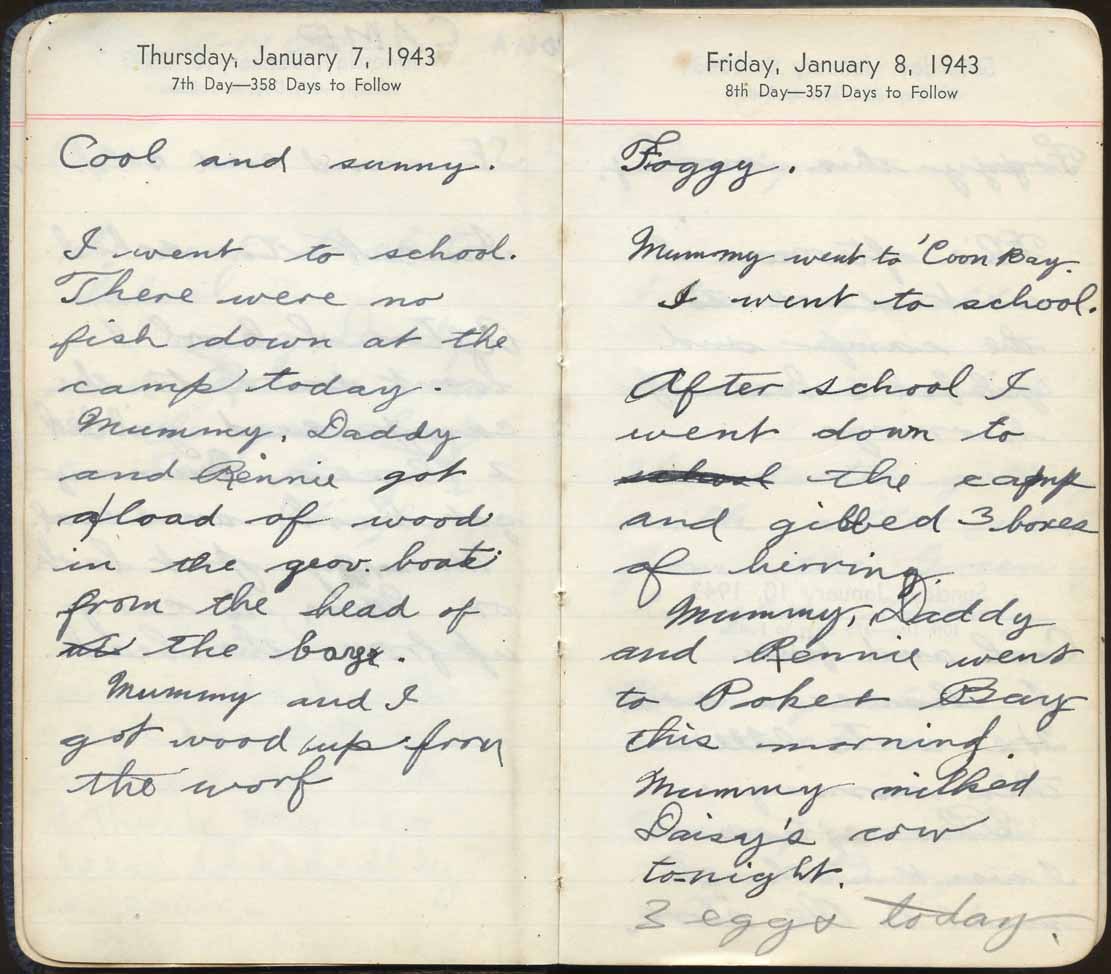 Thursday, January 7, 1943
7th Day—358 Days to Follow
Cool and sunny.
I went to school.
There were no
fish down at the
camp today.
Mummy, Daddy
and Rennie got
a load of wood
in the gov. boat
from the head of
the barge.
Mummy and I
got wood up from
the worf
Friday, January 8, 1943
8th Day—357 Days to Follow
Foggy.
Mummy went to 'Coon Bay.
I went to school.
After school I
went down to
school the camp
and gibbed 3 boxes
of herring.
Mummy, Daddy
and Rennie went
to Poket Bay
this morning.
Mummy milked
Daisy's cow
to-night.
3 eggs today.